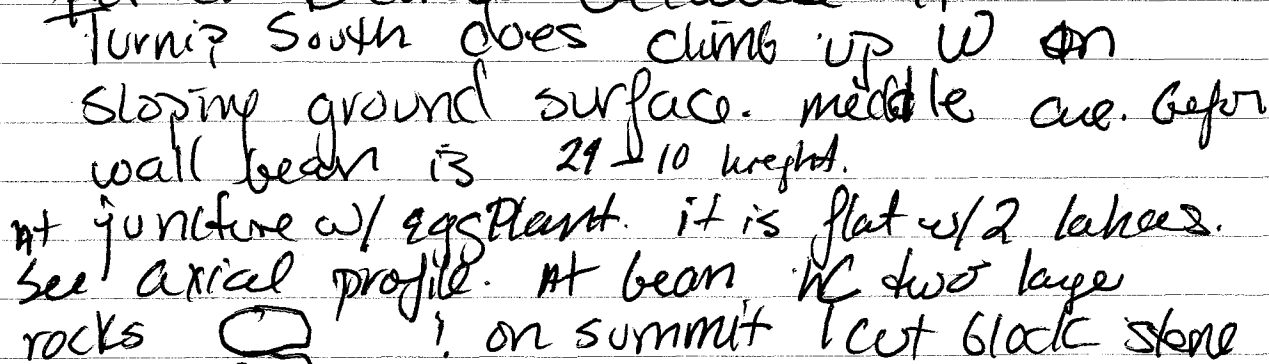 Turnip South does climb up W on
sloping ground surface. middle ave. Befor
wall bean is 29-10 height.
At juncture w/ eggPlant. it is flat w/2
See axial profile. At bean two large
rocks ! on summit 1 cut block stone